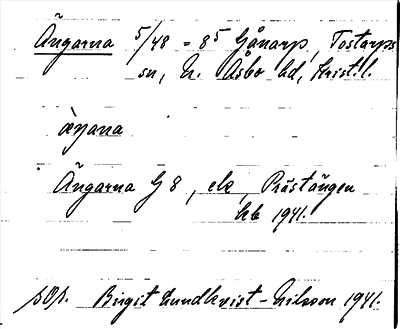 Ängarna 5/48 = 85 Gånarp, Tostarps
sn, N. Åsbo hd, Krist. l.
àŋana
Ängarna G 8, ek, Prästängen
hb 1941.
sOp. Birgit Lundkvist-Nilsson 1941.